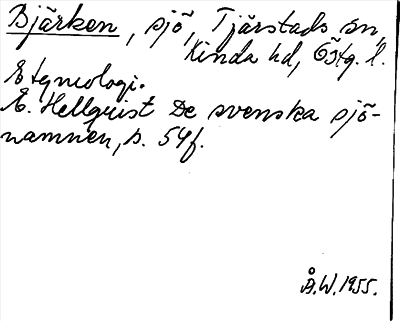 Bjärken, sjö, Tjärstads sn,
Kinda hd, Östg. l.
Etymologi.
E. Hellquist De svenska sjö-
namnen, s. 54f.
Å.W.1955.